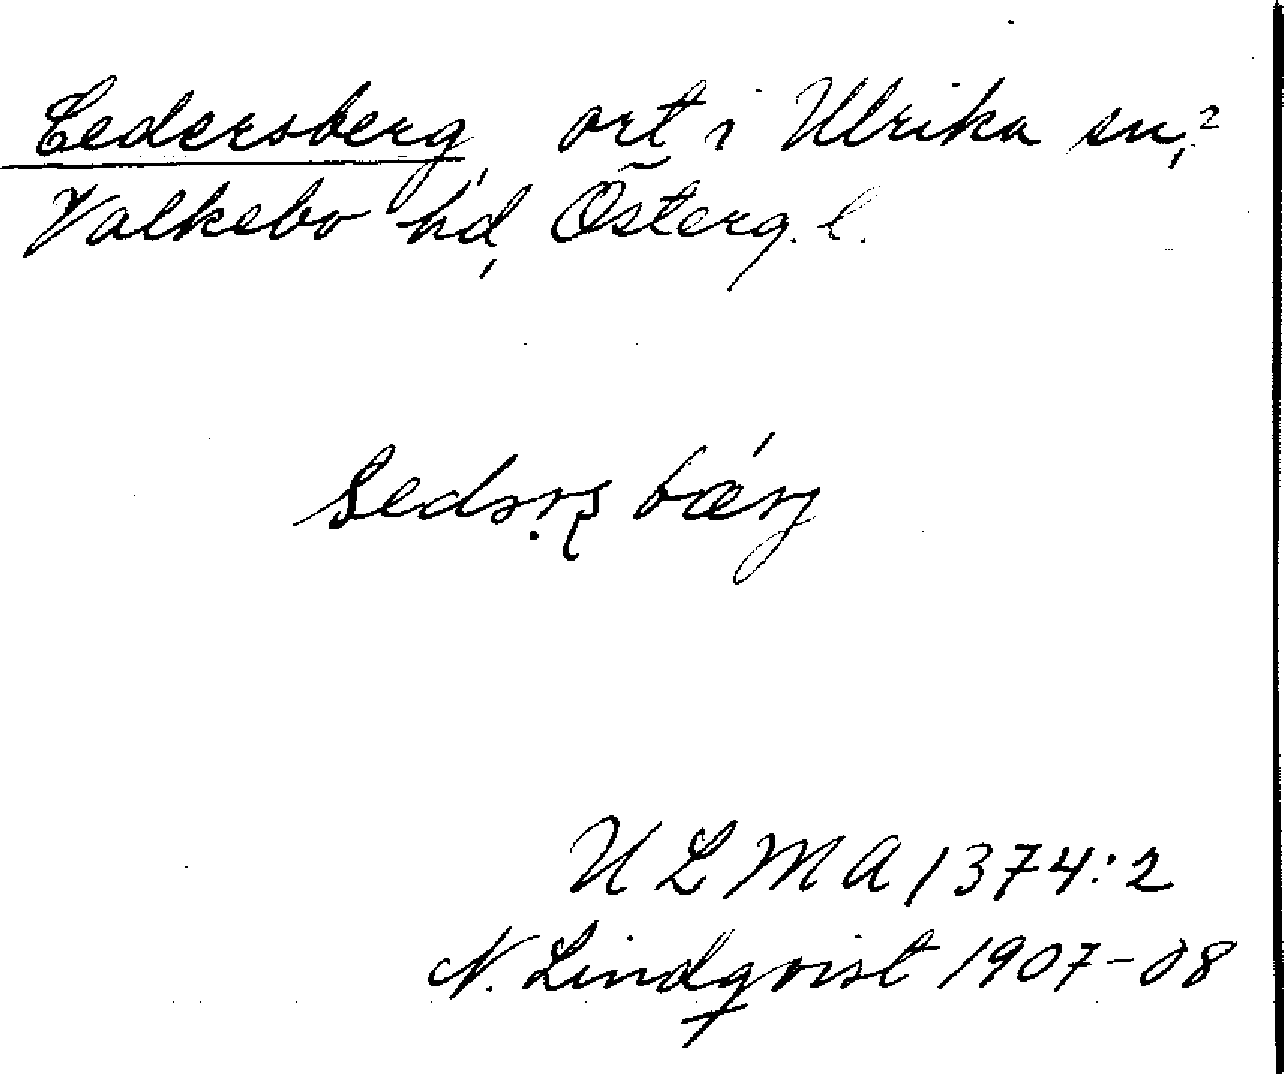 Cedersberg, ort i Ulrika sn,?
Valkebo hd, Österg. l.
ULMA 1374:2
N. Lindqvist 1907-08